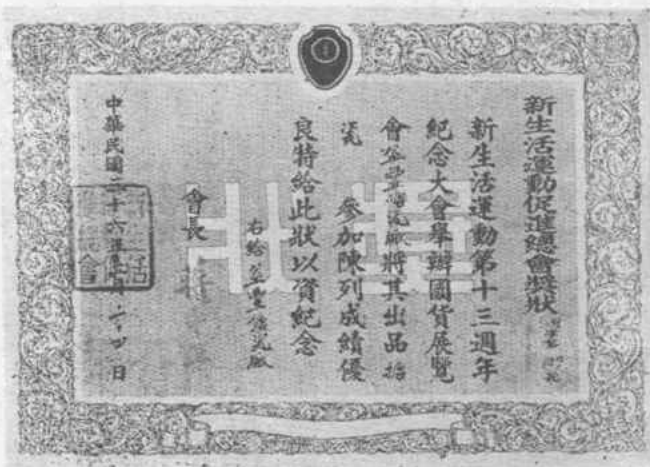 新生活運動促進總會獎狀
新生活運動第十三週年
紀念大會舉辦國貨展覽
會益豐搪瓷廠將其出品搪
瓷 參加陳列成績優
良特給此狀以資紀念
右給益豐搪瓷廠
會長 蔣
中華民國三十六年 月二十四日
獎狀